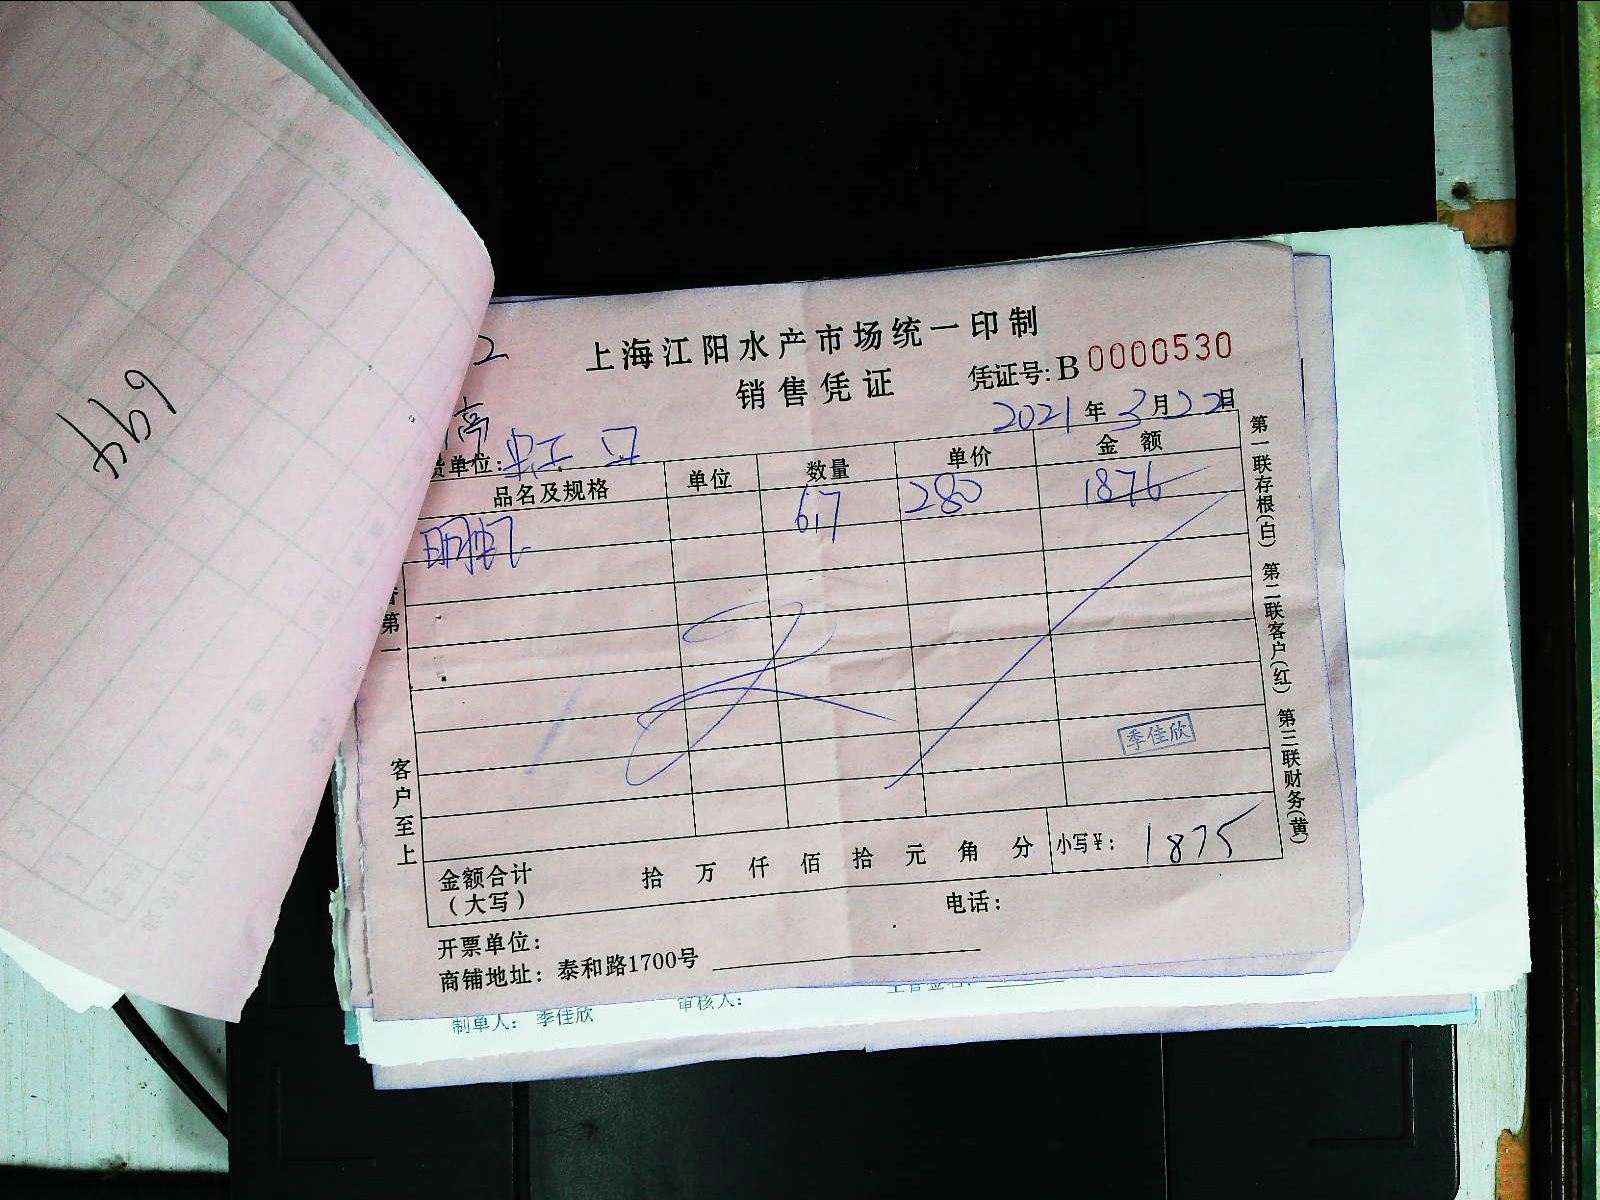 694
2
上海江阳水产市场统一印制
销售凭证
凭证号: B 0000530
2021年3月22日
高
货单位: 虹口
品名及规格 单位 数量 单价 金额
明虾 6.7 280 1876
季佳欣
客户至上
第一
金额合计（大写） 拾 万 仟 佰 拾 元 角 分 小写¥: 1875
开票单位: 电话:
商铺地址: 泰和路1700号
第一联存根(白) 第二联客户(红) 第三联财务(黄)
制单人: 季佳欣 审核人: